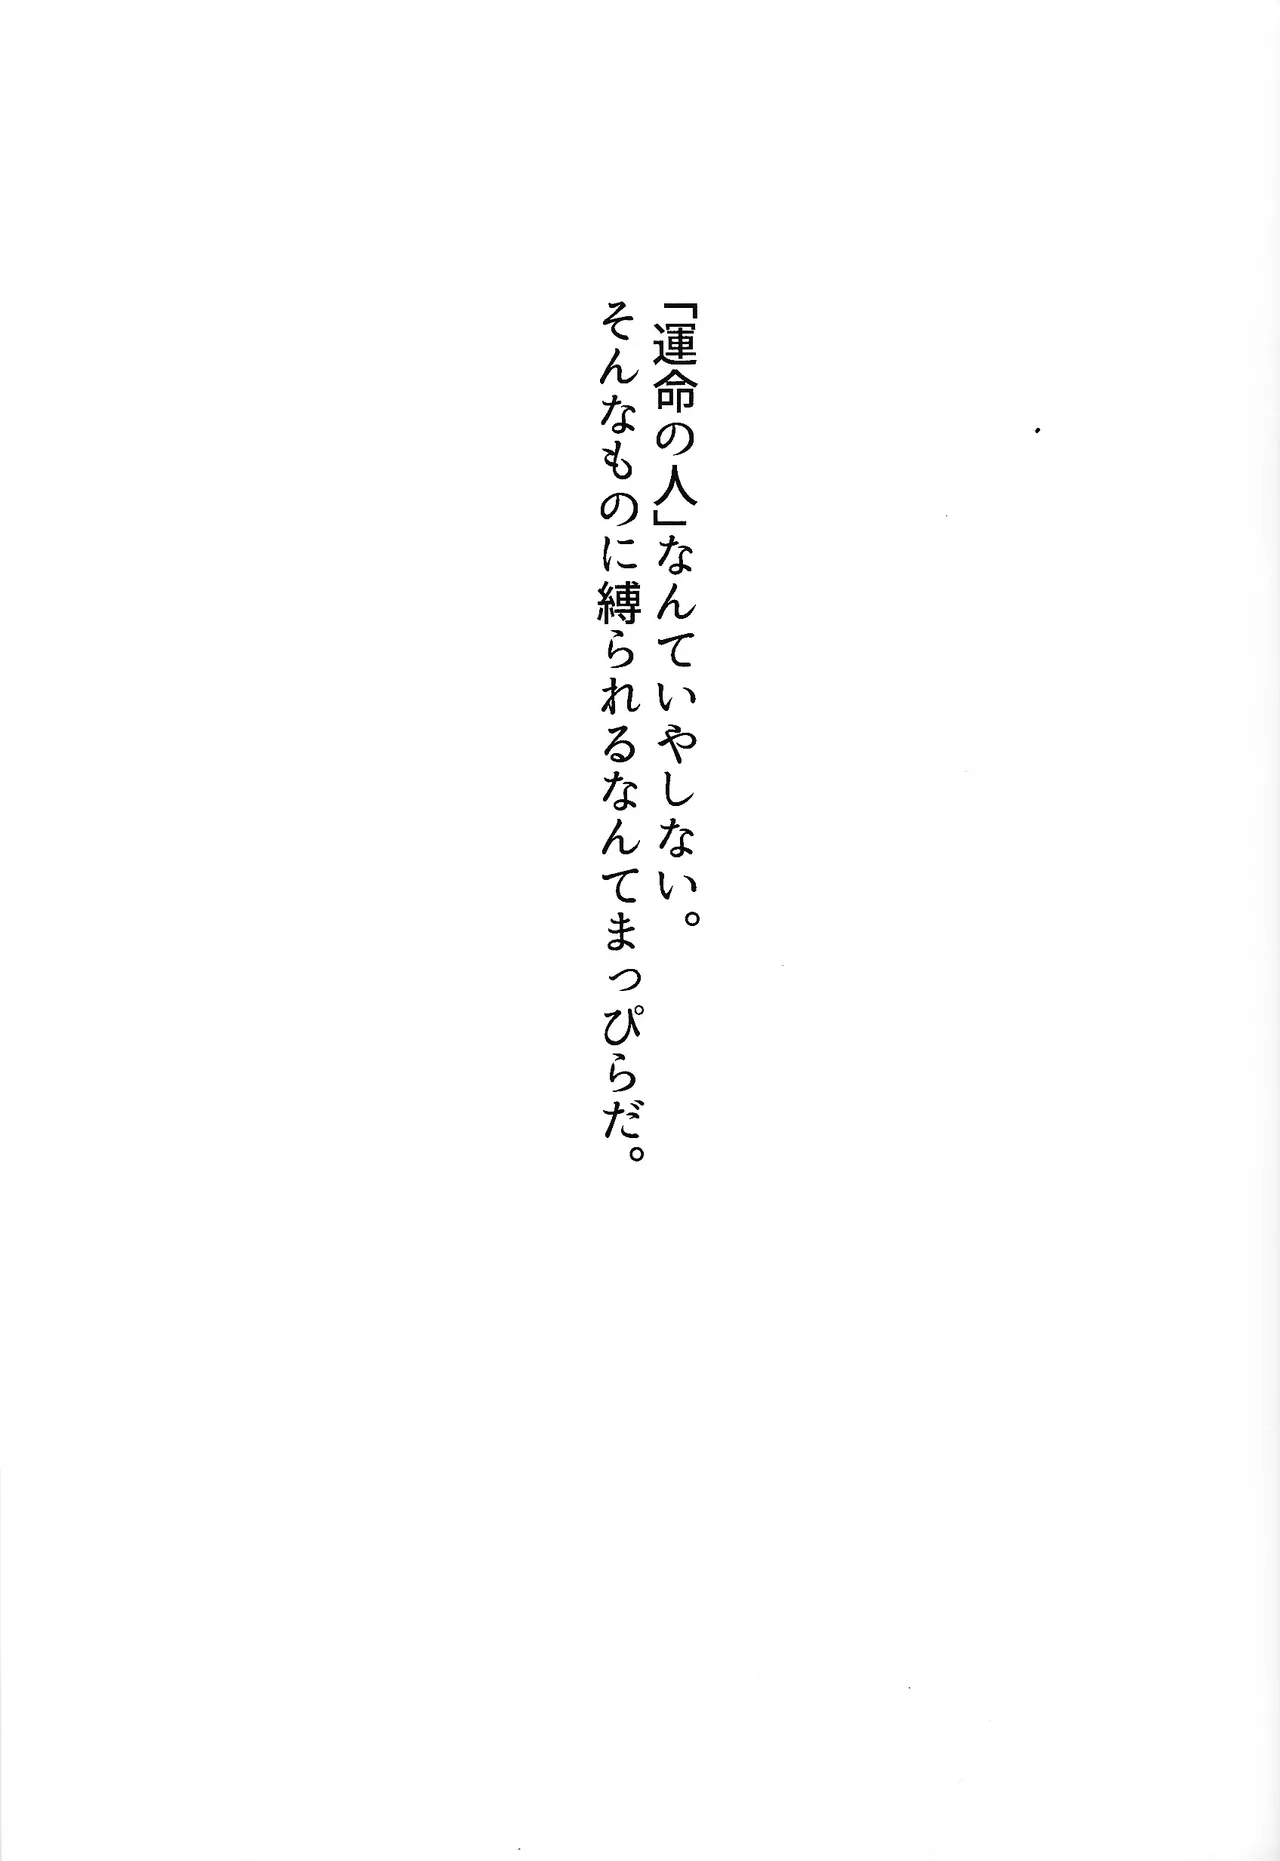 「運命の人」なんていやしない。
そんなものに縛られるなんてまっぴらだ。